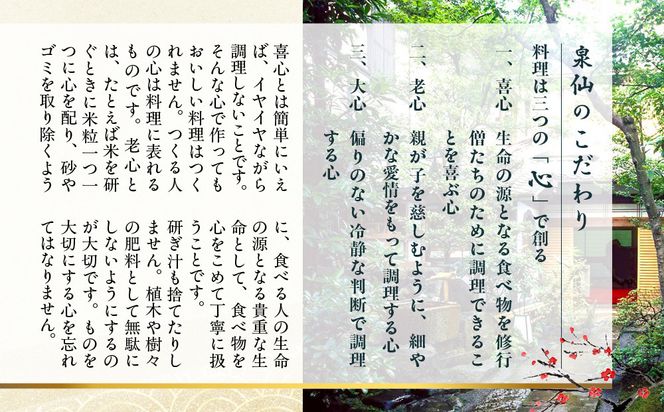 泉仙のこだわり
料理は三つの「心」で創る
一、喜心 生命の源となる食べ物を修行
僧たちのために調理できるこ
とを喜ぶ心
二、老心 親が子を慈しむように、細や
かな愛情をもって調理する心
三、大心 偏りのない冷静な判断で調理
する心
喜心とは簡単にいえ
ば、イヤイヤながら
調理しないことです。
そんな心で作っても
おいしい料理はつく
れません。つくる人
の心は料理に表れる
ものです。老心と
は、たとえば米を研
ぐときに米粒一つ一
つに心を配り、砂や
ゴミを取り除くよう
に、食べる人の生命
の源となる貴重な生
命として、食べ物を
心をこめて丁寧に扱
うことです。
研ぎ汁も捨てたりし
ません。植木や樹々
の肥料として無駄に
しないようにするの
が大切です。ものを
大切にする心を忘れ
てはなりません。